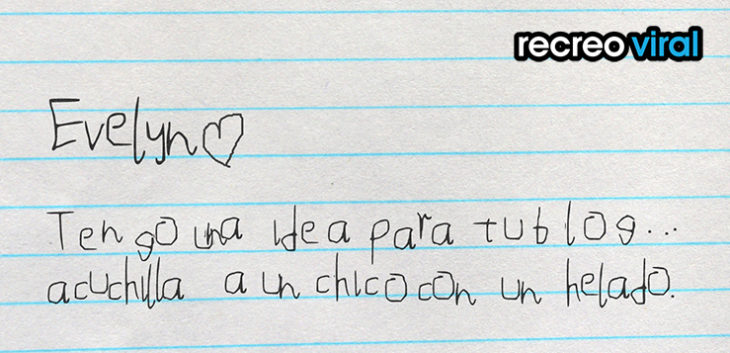 recreoviral
Evelyn♡
Tengo una idea para tu blog...
acuchilla a un chico con un helado.